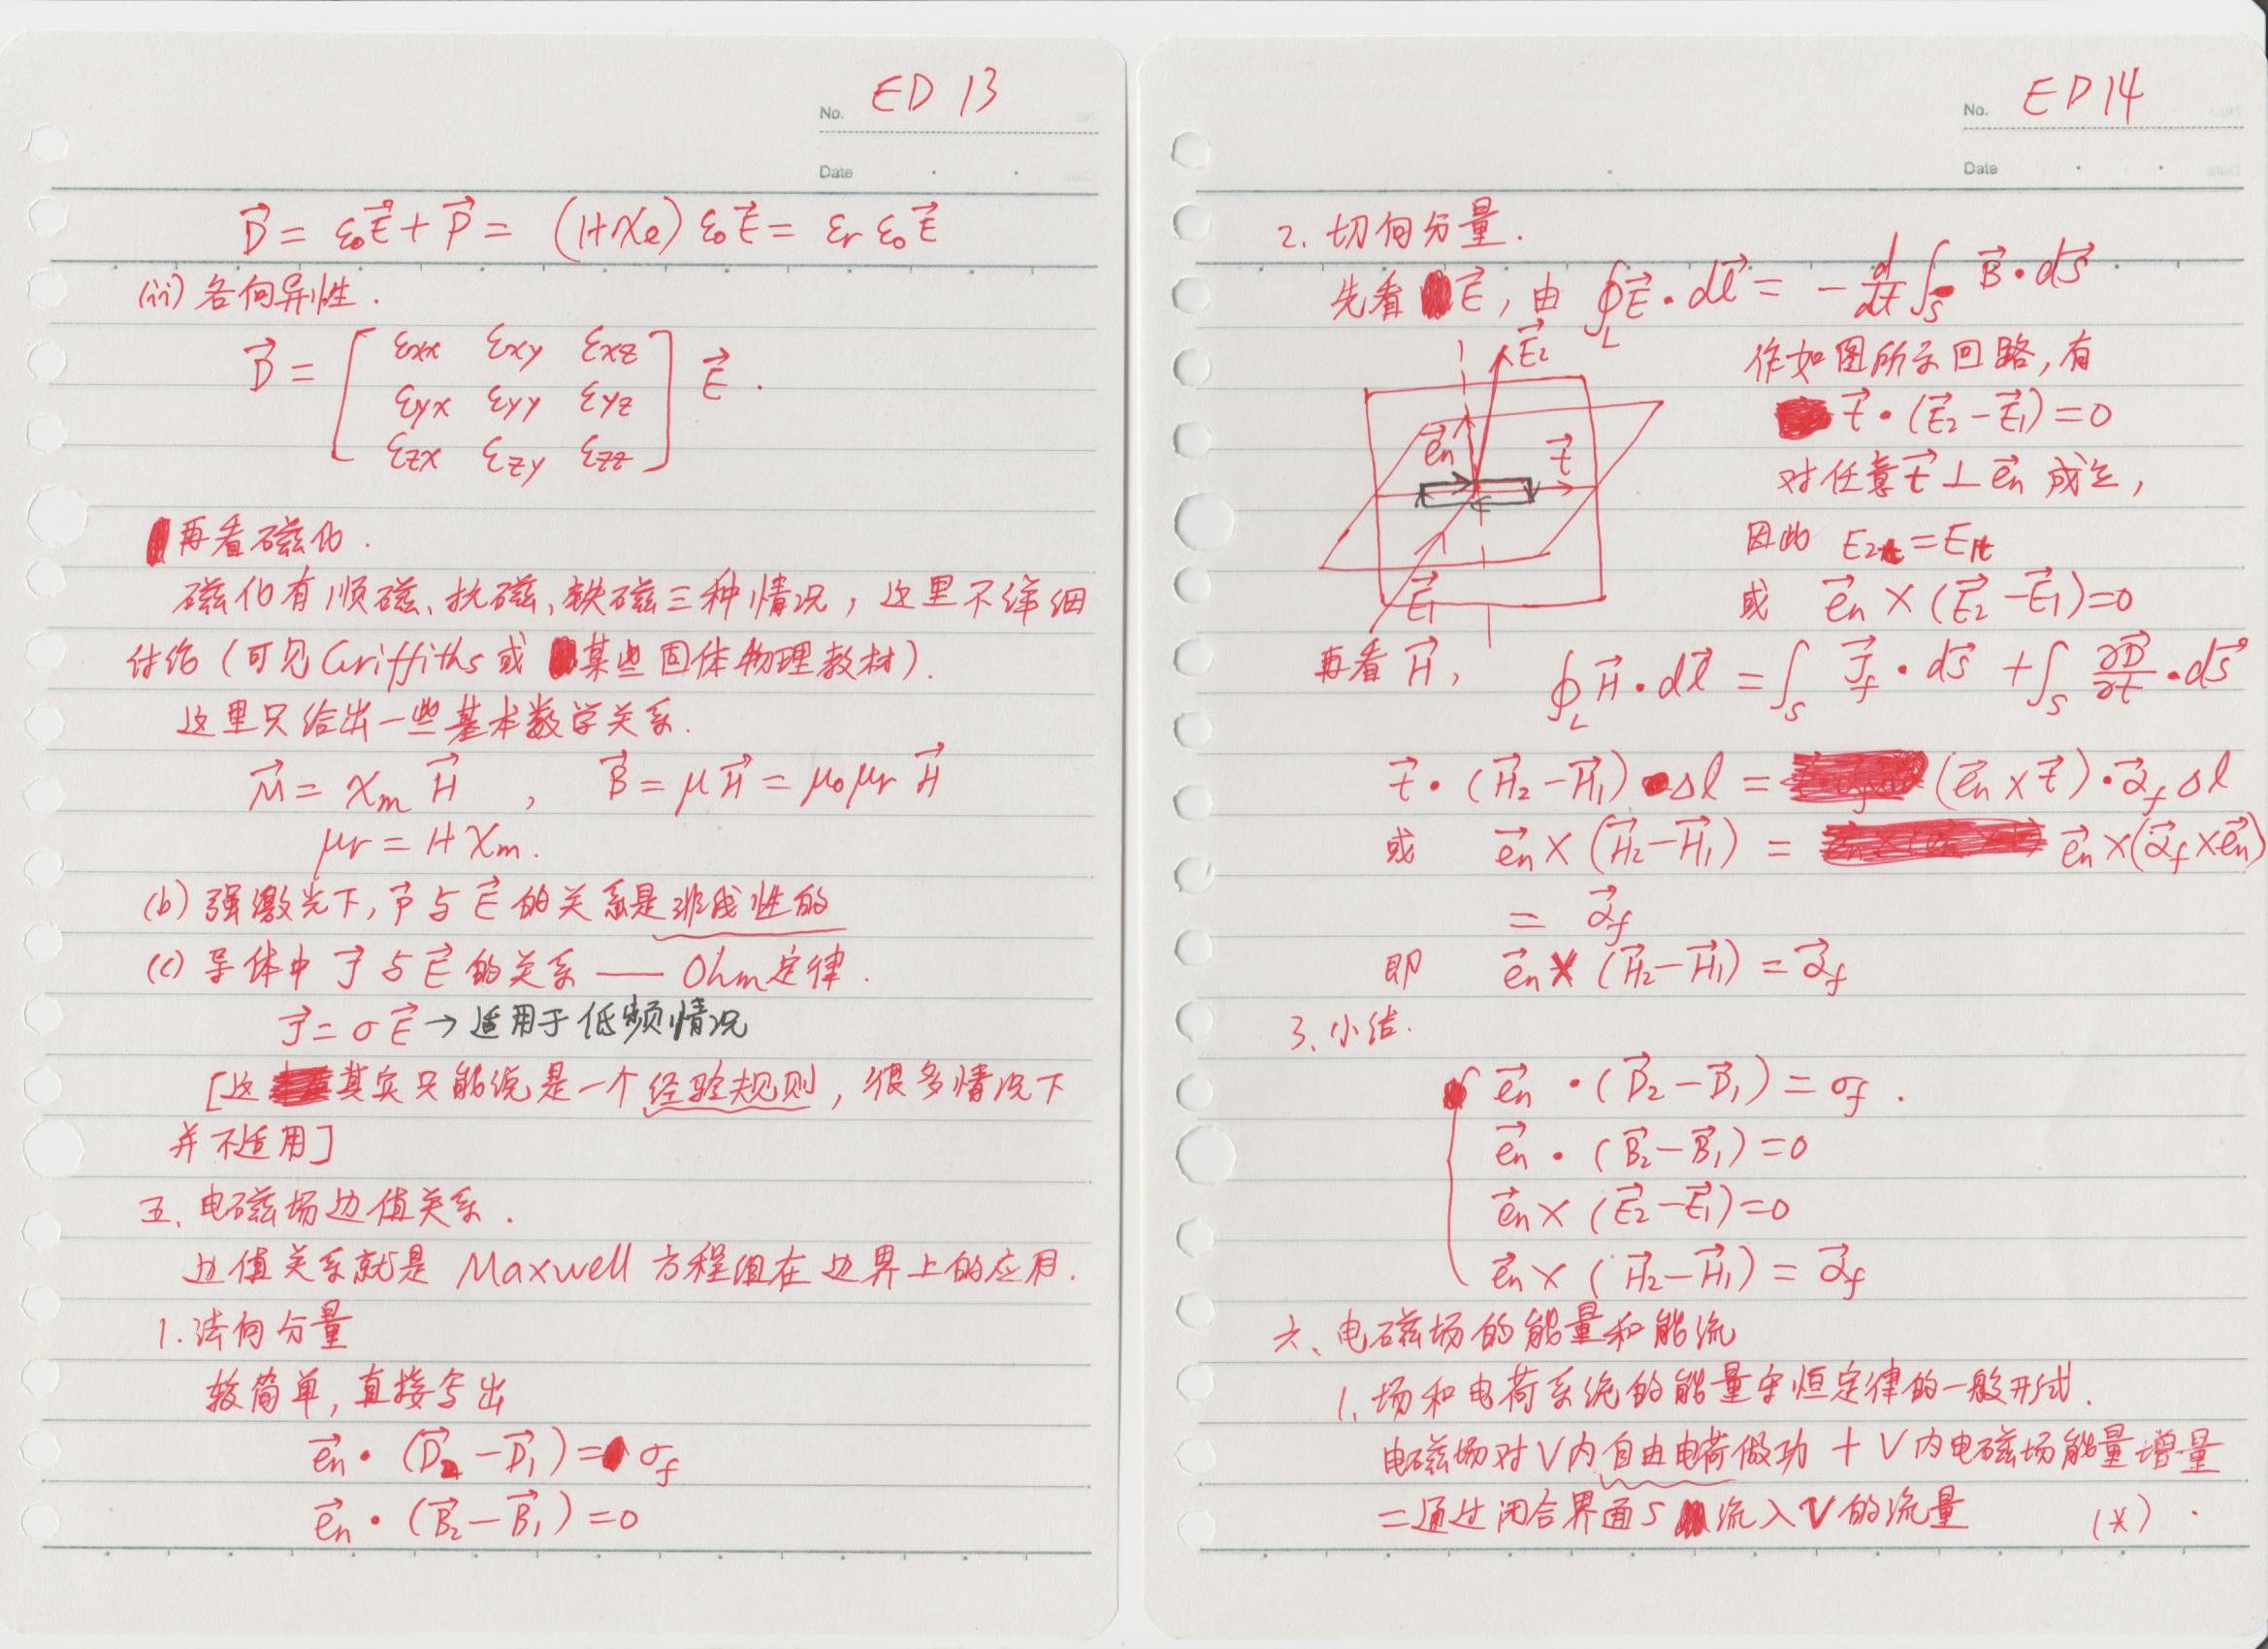 No. ED 13
Date
D⃗ = ε₀E⃗ + P⃗ = (1+χe) ε₀E⃗ = εr ε₀E⃗
(ii) 各向异性.
D⃗ = [ εxx εxy εxz
εyx εyy εyz
εzx εzy εzz ] E⃗ .
再看磁化.
磁化有顺磁、抗磁、铁磁三种情况, 这里不详细
讨论 (可见 Griffiths 或某些固体物理教材).
这里只给出一些基本数学关系.
M⃗ = χm H⃗ , B⃗ = μH⃗ = μ₀μr H⃗
μr = 1+χm.
(b) 强激光下, P⃗ 与 E⃗ 的关系是非线性的
(c) 导体中 J⃗ 与 E⃗ 的关系 —— Ohm定律.
J⃗ = σE⃗ → 适用于低频情况
[这其实只能说是一个经验规则, 很多情况下
并不适用]
五、电磁场边值关系.
边值关系就是 Maxwell 方程组在边界上的应用.
1. 法向分量
较简单, 直接写出
e⃗n · (D⃗₂ − D⃗₁) = σf
e⃗n · (B⃗₂ − B⃗₁) = 0
No. ED 14
Date
2. 切向分量.
先看 E⃗, 由 ∮L E⃗ · dl⃗ = − d/dt ∫S B⃗ · dS⃗
E⃗₂
作如图所示回路, 有
t⃗ · (E⃗₂ − E⃗₁) = 0
e⃗n t⃗
对任意 t⃗ ⊥ e⃗n 成立,
因此 E2t = E1t
E⃗₁
或 e⃗n × (E⃗₂ − E⃗₁) = 0
再看 H⃗, ∮L H⃗ · dl⃗ = ∫S J⃗f · dS⃗ + ∫S ∂D⃗/∂t · dS⃗
t⃗ · (H⃗₂ − H⃗₁) Δl = (e⃗n × t⃗) · α⃗f Δl
或 e⃗n × (H⃗₂ − H⃗₁) = e⃗n × (α⃗f × e⃗n)
= α⃗f
即 e⃗n × (H⃗₂ − H⃗₁) = α⃗f
3. 小结.
{ e⃗n · (D⃗₂ − D⃗₁) = σf .
e⃗n · (B⃗₂ − B⃗₁) = 0
e⃗n × (E⃗₂ − E⃗₁) = 0
e⃗n × (H⃗₂ − H⃗₁) = α⃗f
六、电磁场的能量和能流
1. 场和电荷系统的能量守恒定律的一般形式.
电磁场对V内自由电荷做功 + V内电磁场能量增量
= 通过闭合界面S流入V的流量 (*) .